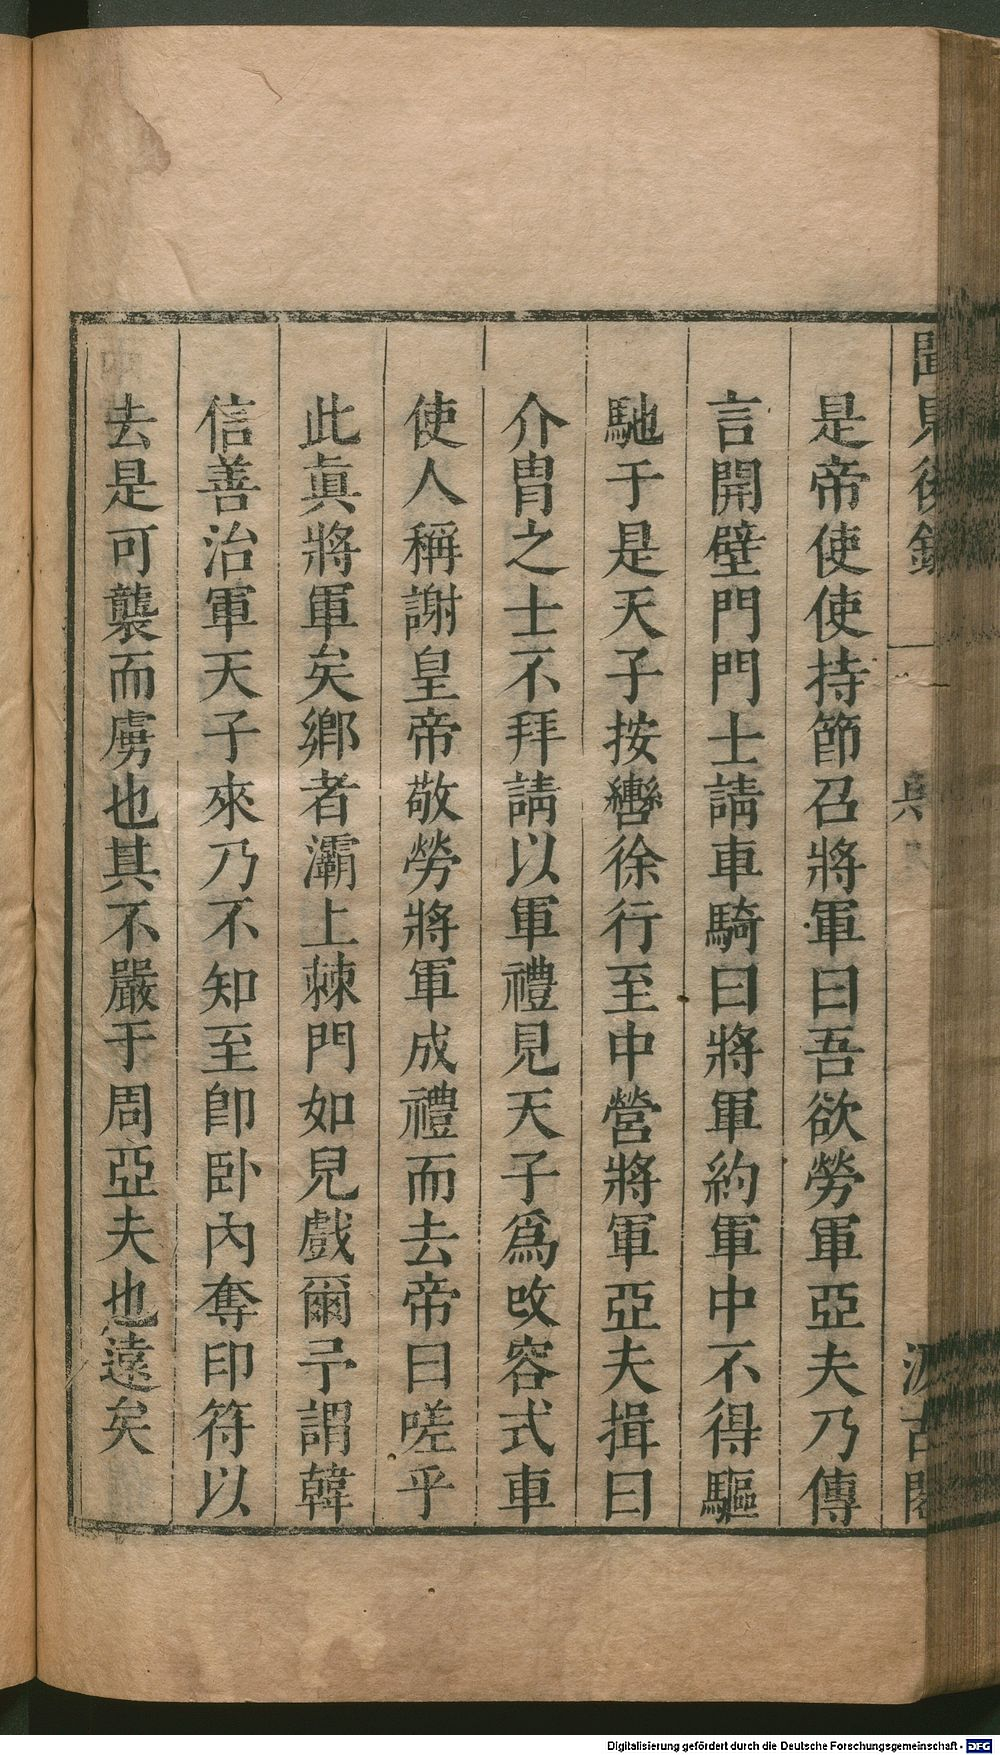 聞見後錄
汲古閣
是帝使使持節召將軍曰吾欲勞軍亞夫乃傳
言開壁門門士請車騎曰將軍約軍中不得驅
馳于是天子按轡徐行至中營將軍亞夫揖曰
介胄之士不拜請以軍禮見天子爲攺容式車
使人稱謝皇帝敬勞將軍成禮而去帝曰嗟乎
此眞將軍矣鄉者灞上棘門如兒戲爾予謂韓
信善治軍天子來乃不知至卽臥內奪印符以
去是可襲而虜也其不嚴于周亞夫也遠矣
Digitalisierung gefördert durch die Deutsche Forschungsgemeinschaft - DFG